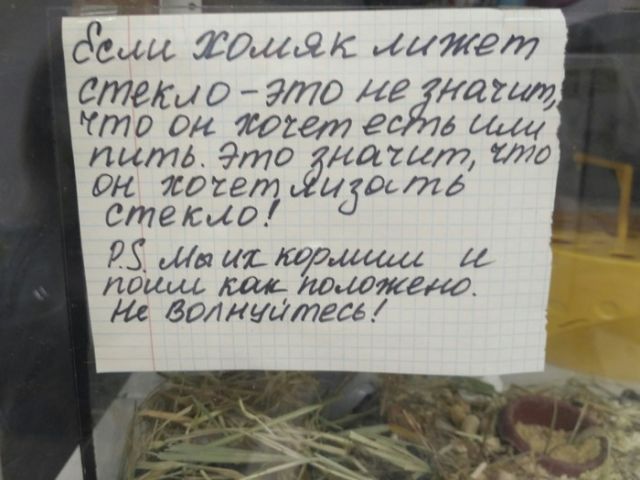 Если хомяк лижет
стекло – это не значит,
что он хочет есть или
пить. Это значит, что
он хочет лизать
стекло!
P.S. Мы их кормим и
поим как положено.
Не волнуйтесь!